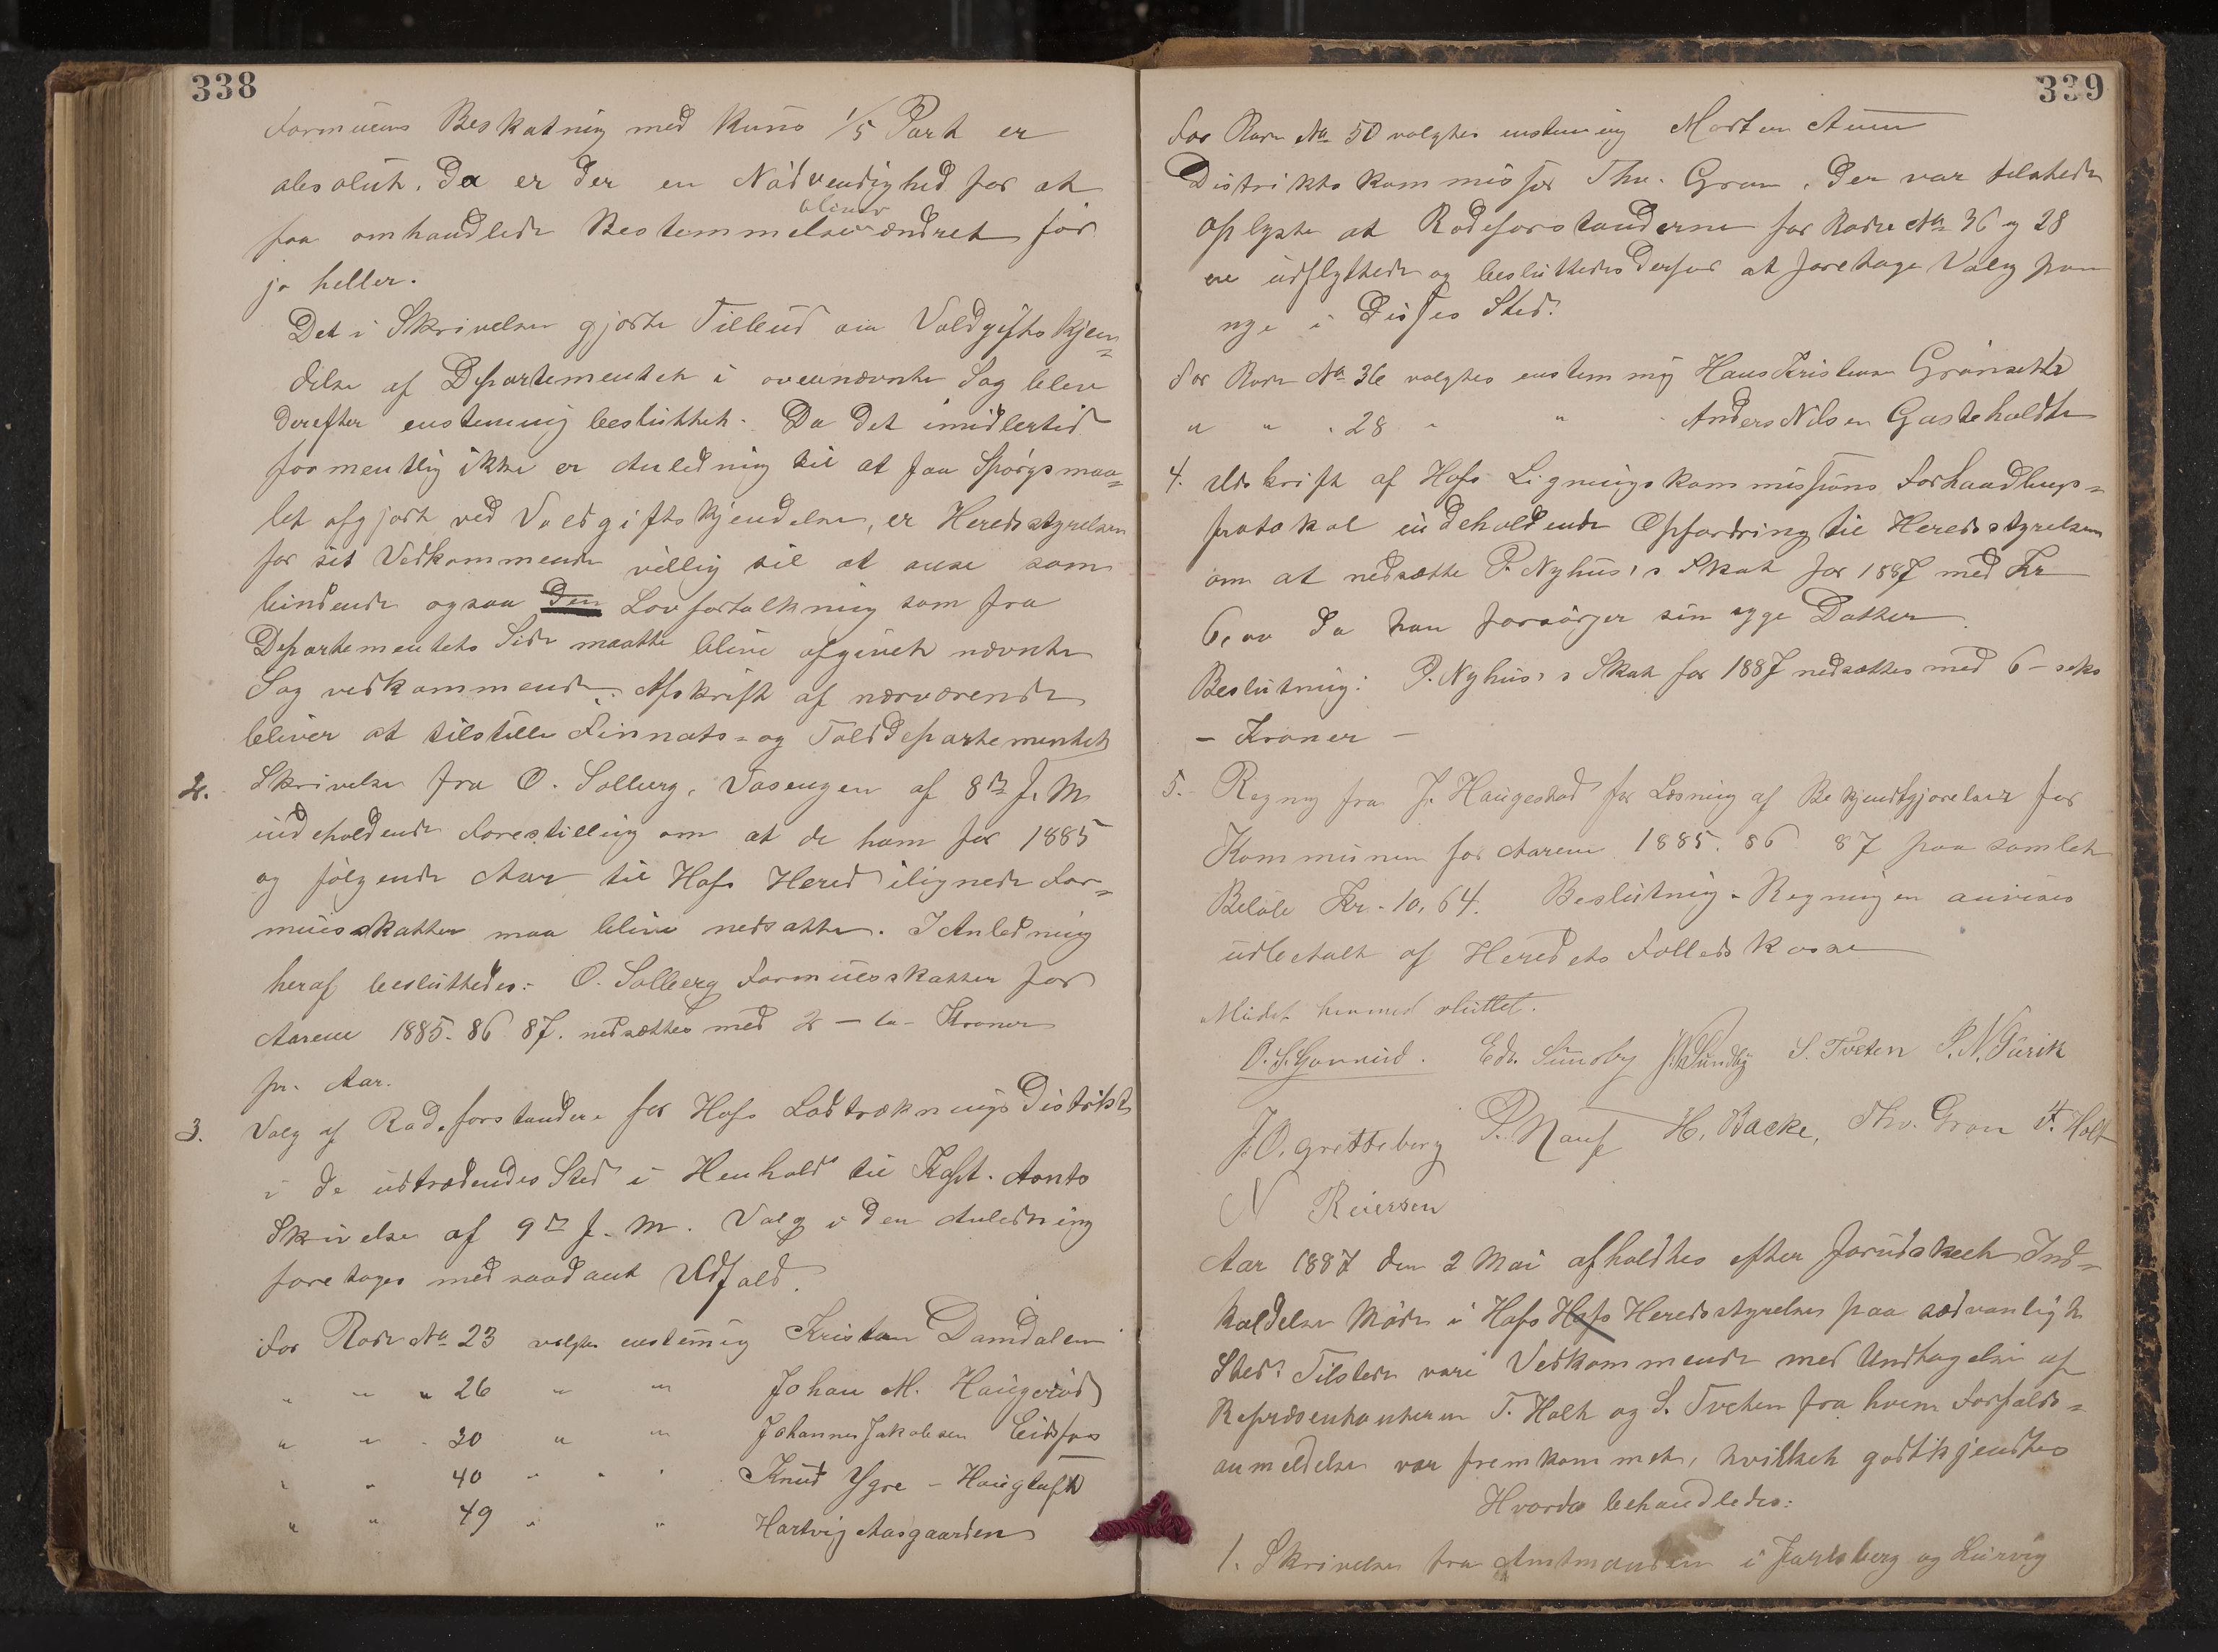 338
Formuens Beskatning med kuns 1/5 Part er
absolut. Da er der en Nødvendighed for at
bliver
faa omhandlede Bestemmelser ændret før
jo heller.
Det i Skrivelsen gjorte Tilbud om Voldgiftskjen=
delse af Departementet i ovennævnte Sag blev
derefter enstemmig besluttet. Da det imidlertid
formentlig ikke er Anledning til at faa Spørgsmaa=
let afgjort ved Voldgiftskjendelse, er Heredsstyrelsen
for sit Vedkommende villig til at anse som
bindende ogsaa den Lovfortolkning som fra
Departementets Side maatte blive afgivet nævnte
Sag vedkommende. Afskrift af nærværende
bliver at tilstille Finnats- og Tolddepartementet
2. Skrivelse fra O. Solberg, Vasengen af 8de f. M.
indeholdende Forestilling om at de ham for 1885
og følgende Aar til Hofs Hered ilignede For=
muesskatter maa blive nedsatte. I Anledning
heraf besluttedes: O. Solberg Formuesskatter for
Aarene 1885. 86 87. nedsættes med 2 – to – Kroner
pr. Aar.
3. Valg af Rodeforstandere for Hofs Lodtrækningsdistrikt
i de udtrædendes Sted i Henhold til Kapt. Aonts
Skrivelse af 9de f. M. Valg i den Anledning
foretoges med saadant Udfald.
For Rode No 23 valgtes enstemmig Kristian Damdalen
" " " 26 " " Johan M. Haugerød
" " " 30 " " Johannes Jakobsen Eidsfos
" " 40 " " " Knud Ygre – Haugløpta
" " 49 " " Hartvig Aasgaarden
339
For Rode No 50 valgtes enstemmig Morten Auen
Distriktskommissær Thv. Gran, der var tilstede
oplyste at Rodeforstanderne for Rode No 36 og 28
ere udflyttede og besluttedes derfor at foretage Valg paa
nye i disses Sted.
For Rode No 36 valgtes enstemmig Hans Kristian Grønsett
" " " 28 " " Anders Nilsen Gasteholdt
4. Udskrift af Hofs Ligningskommissions Forhandlings=
protokol indeholdende Opfordring til Heredsstyrelsen
om at nedsætte P. Nyhus's Skat for 1887 med Kr
6,00 da han forsørger sin syge Datter.
Beslutning: P. Nyhus's Skat for 1887 nedsættes med 6 – seks
– Kroner –
5. Regning fra J. Haugestad for Læsning af Bekjendtgjørelser for
Kommunen for Aarene 1885. 86 87 paa samlet
Beløb Kr. 10,64. Beslutning. Regningen anvises
udbetalt af Heredets Fælledskasse
Mødet hermed sluttet.
O. S. Gavnud. Edv. Sundby J. W. Sundby S. Tveten P. N. Turik
J. O. Gretteberg P. Nauf H. Backe, Thv. Gran T. Holt
N Reiersen
Aar 1887 den 2 Mai afholdtes efter forudskeet Ind=
kaldelse Møde i Hofs Hofs Heredsstyrelse paa sædvanligt
Sted. Tilstede vare Vedkommende med Undtagelse af
Repræsentanterne T. Holt og S. Tveten fra hvem Forfalds=
anmeldelse var fremkommet, hvilket godtkjendtes
Hvorda behandledes:
1. Skrivelse fra Amtmanden i Jarlsberg og Lurvig